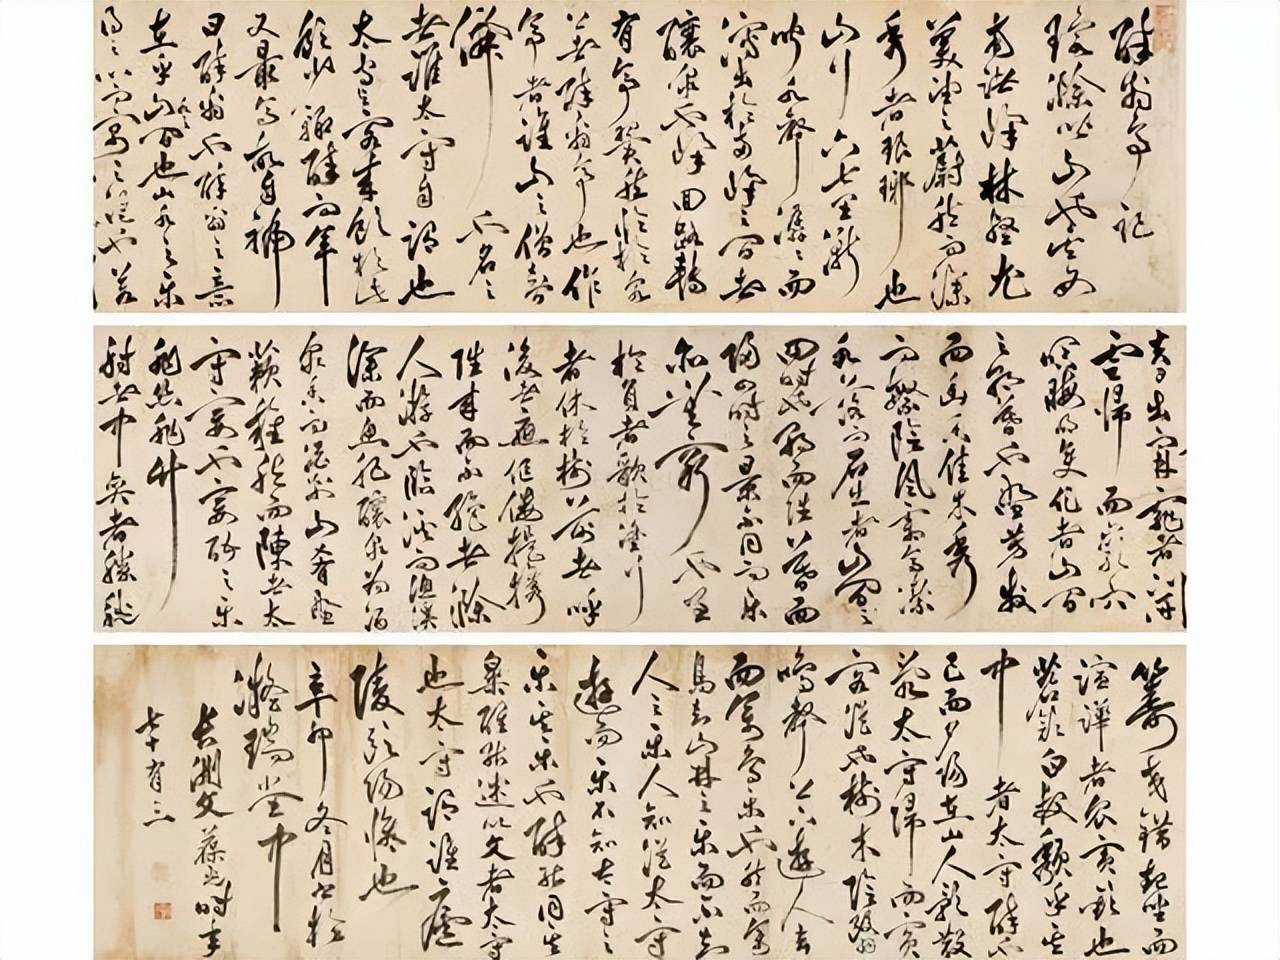 醉翁亭記
環滁皆山也其西
南諸峰林壑尤
美望之蔚然而深
秀者琅琊也
山行六七里漸
聞水聲潺潺而
瀉出於兩峰之間者
釀泉也峰回路轉
有亭翼然臨於泉
上者醉翁亭也作
亭者誰山之僧智
僊也名之
者誰太守自謂也
太守與客來飲於此
飲少輒醉而年
又最高故自號
曰醉翁也醉翁之意
在乎山水之間也山水之樂
得之心而寓之酒也若
夫日出而林霏開
雲歸而巖穴
暝晦明變化者山間
之朝暮也野芳發
而幽香佳木秀
而繁陰風霜高潔
水落而石出者山間之
四時也朝而往暮而
歸四時之景不同而樂
亦無窮也至
於負者歌於塗行
者休於樹前者呼
後者應傴僂提攜
往來而不絕者滁
人遊也臨溪而漁溪
深而魚肥釀泉為酒
泉香而酒洌山肴野
蔌雜然而陳者太
守宴也宴酣之樂
非絲非竹
射者中弈者勝觥
籌交錯起坐而
諠譁者眾賓歡也
蒼顏白髮頹乎其
中者太守醉也
已而夕陽在山人影散
亂太守歸而賓
客從也樹木陰翳
鳴聲上下遊人去
而禽鳥樂也然而禽
鳥知山林之樂而不知
人之樂人知從太守
遊而樂不知太守之
樂其樂也醉能同其
樂醒能述以文者太守
也太守謂誰廬
陵歐陽脩也
辛卯冬月書於
凝瑞堂中
長洲文葆光時年
七十有三